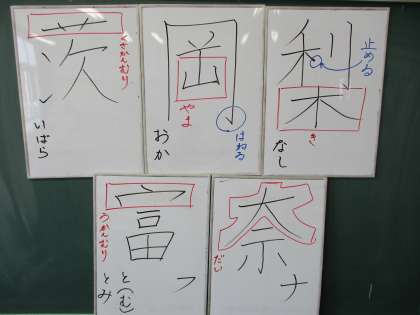 茨
くさかんむり
いばら
岡
やま
はねる
おか
梨
止める
き
なし
富
うかんむり
と(む)
とみ
フ
奈
だい
ナ